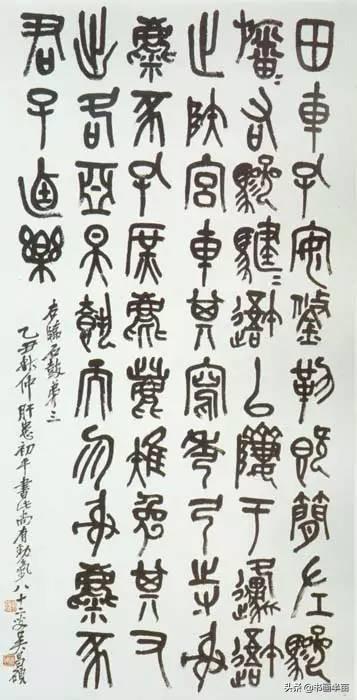 田車孔安鋚勒既簡左驂
旛=右驂騝=䢈以隮于邍䢈
止陜宮車其寫秀弓寺射
麋豕孔庶麀鹿雉兔其又
出各亞昊執而勿射麋豕
君子逌樂
右臨石鼓弟三
乙丑秋仲肝患初平書此尚有勁氣八十二叟吳昌碩
头条 @书画半亩